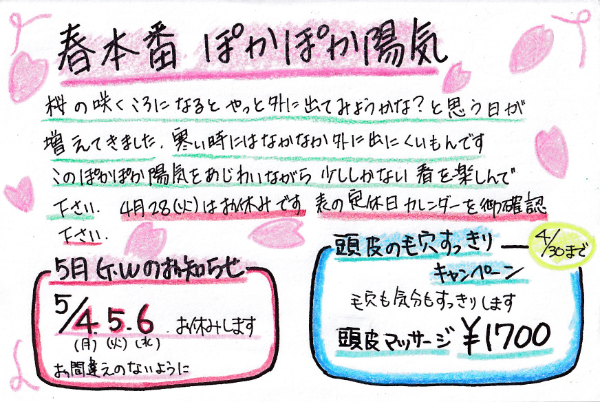 春本番 ぽかぽか陽気
桜の咲くころになるとやっと外に出てみようかな？と思う日が
増えてきました。寒い時にはなかなか外に出にくいもんです
このぽかぽか陽気をあじわいながら 少ししかない春を楽しんで
下さい。 4月28(火)はお休みです 表の定休日カレンダーを御確認
下さい。
5月G.Wのお知らせ
5/4.5.6 お休みします
(月)(火)(水)
お間違えのないように
頭皮の毛穴すっきり
キャンペーン
4/30まで
毛穴も気分もすっきりします
頭皮マッサージ ¥1700